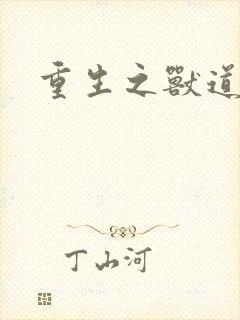 重生之獸道
丁山河